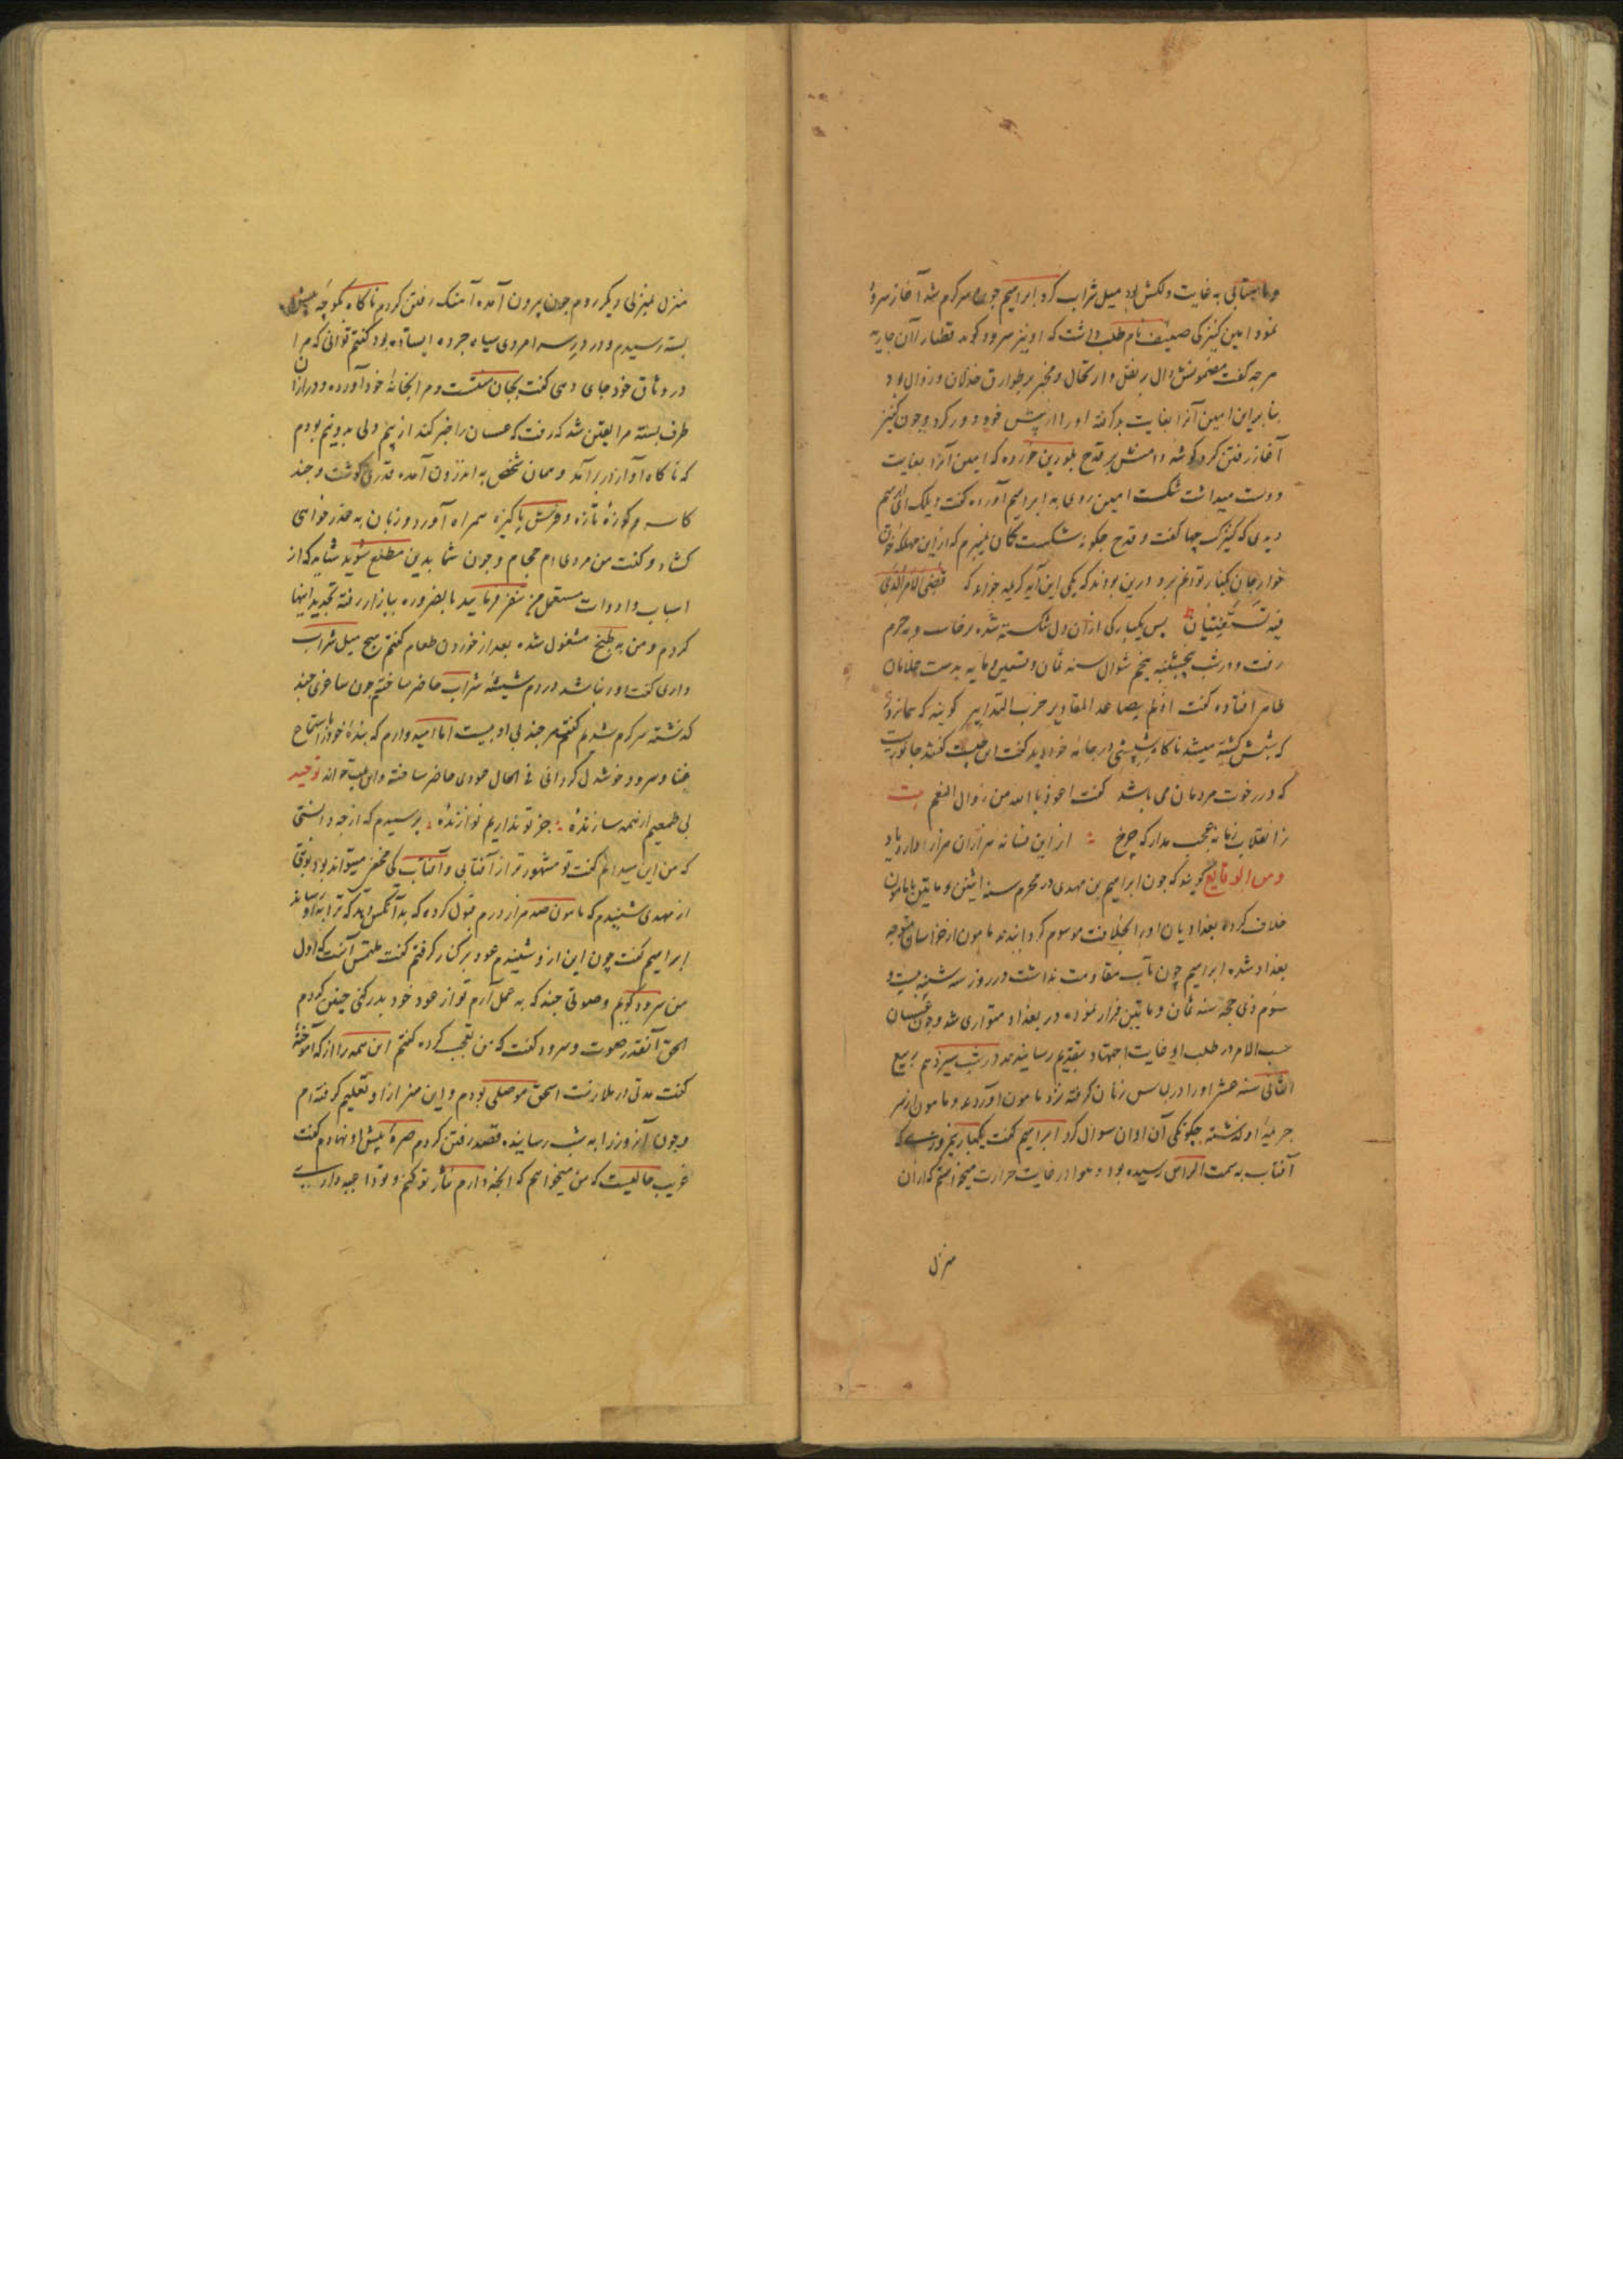 و ماهتابی به غایت دلکش بود میل شراب کرد ابراهیم چون سرکرم شد آغاز سرود
نمود امین کنیزکی ضعیفه نام طلب داشت که او نیز سرود کوید قضا را آن جاریه
هرجه کفت مضمونش دال بر نقل و ارتحال و مخبر بر طوارق خذلان و زوال بود
بنابراین امین آنرا بغایت بد کرفته او را از پیش خود دور کرد و چون کنیز
آغاز رفتن کرد کوشه دامنش بر قدح بلورین خورده که امین آنرا بغایت
دوست میداشت شکست امین روی به ابراهیم آورده کفت ویلک ای ابراهیم
دیدی که کنیزک چها کفت و قدح چکونه شکست کمان میبرم که ازین مهلکه
جان بکنار نتوانم برد درین بودند که یکی این آیه کریمه خواند که قضی الامر الذی
فیه تستفتیان پس یکبارکی از آن دل شکسته شده برخاست و به حرم
رفت و در شب پنجشنبه پنجم شوال سنه ثمان و تسعین و مایه بدست غلامان
طاهر افتاده کفت اذا لم یصاعد المقادیر خرب التدابیر کویند که همان روز
که شبش کشته میشد ناکاه شپشی در جامه خود دید کفت این چیست کفتند جانوریست
که در رخوت مردمان می باشد کفت اعوذ بالله من زوال النعم بیت
ز انقلاب زمانه عجب مدار که چرخ ازین فسانه هزاران هزار دارد یاد
و من الوقایع کویند که چون ابراهیم بن مهدی در محرم سنه اثنین و مایتین با مامون
خلاف کرده بغدادیان او را بخلافت موسوم کردانیدند مامون از خراسان متوجه
بغداد شده ابراهیم چون تاب مقاومت نداشت در روز سه شنبه بیست و
سوم ذی حجه سنه ثمان و مایتین فرار نموده در بغداد متواری شد و چون عسسان
حسب الامر در طلب او غایت اجتهاد بتقدیم رسانیدند در شب سیزدهم ربیع
الثانی سنه عشر او را در لباس زنان کرفته نزد مامون آوردند و مامون از سر
جریمه او کذشته چکونکی آن اوان سوال کرد ابراهیم کفت یکبار نیمروزی که
آفتاب به سمت الراس رسیده بود و هوا در غایت حرارت میخواستم که از آن
منزل
منزل بمنزلی دیکر روم چون بیرون آمده آهنک رفتن کردم ناکاه بکوچه پیش
بسته رسیدم و در در سرا مردی سیاه جرده ایستاده بود کفتم توانی که مرا
در وثاق خود جای دهی کفت بجان منتست و مرا بخانه خود آورده و در از آن
طرف بسته مرا یقین شد که رفت که عسسان را خبر کند از بیم دلی بدونیم بودم
که ناکاه آواز در برآمد و همان شخص به اندرون آمده قدری کوشت و چند
کاسه و کوزه تازه و فرش پاکیزه همراه آورد و زبان به عذر خواهی
کشاد و کفت من مردی ام حجام و چون شما بدین مطلع شوید شاید که از
اسباب و ادوات مستعمل من تنفر فرمایید بالضروره ببازار رفته تجدید اینها
کردم و من به طبخ مشغول شده بعد از خوردن طعام کفتم هیچ میل شراب
داری کفت اورنباشد در دم شیشه شراب حاضر ساختم چون ساغری چند
کذشته سرکرم شدیم کفتم هرچند بی ادبیست اما امید وارم که بنده خود را باستماع
غنا و سرود خوشدل کردانی فی الحال عودی حاضر ساخته و این بیت خواند توحید
بی طمعیم از همه سازنده جز تو نداریم نوازنده پرسیدم که از چه دانستی
که من این میدانم کفت تو مشهورتر از آفتابی و آفتاب کی مخفی میتواند بود
از مهدی شنیدم که مامون صد هزار درم قبول کرده که بدآنکس دهد که ترا به او رساند
ابراهیم کفت چون این ازو شنیدم عود برکنار کرفتم کفت ملتمس آنست که اول
من سرود کویم و صوتی چند که به عمل آرم تو از عود خود بدر کنی چنین کردم
الحق آنقدر صوت و سرود کفت که من تعجب کرده کفتم این همه را از که آموخته
کفت مدتی در ملازمت اسحق موصلی بودم و این هنر از او تعلیم کرفته ام
و چون آنروز را به شب رسانیده قصد رفتن کردم صره پیش او نهادم کفت
غریب حالیست که من میخواهم که آنچه دارم نثار تو کنم و تو داعیه داری